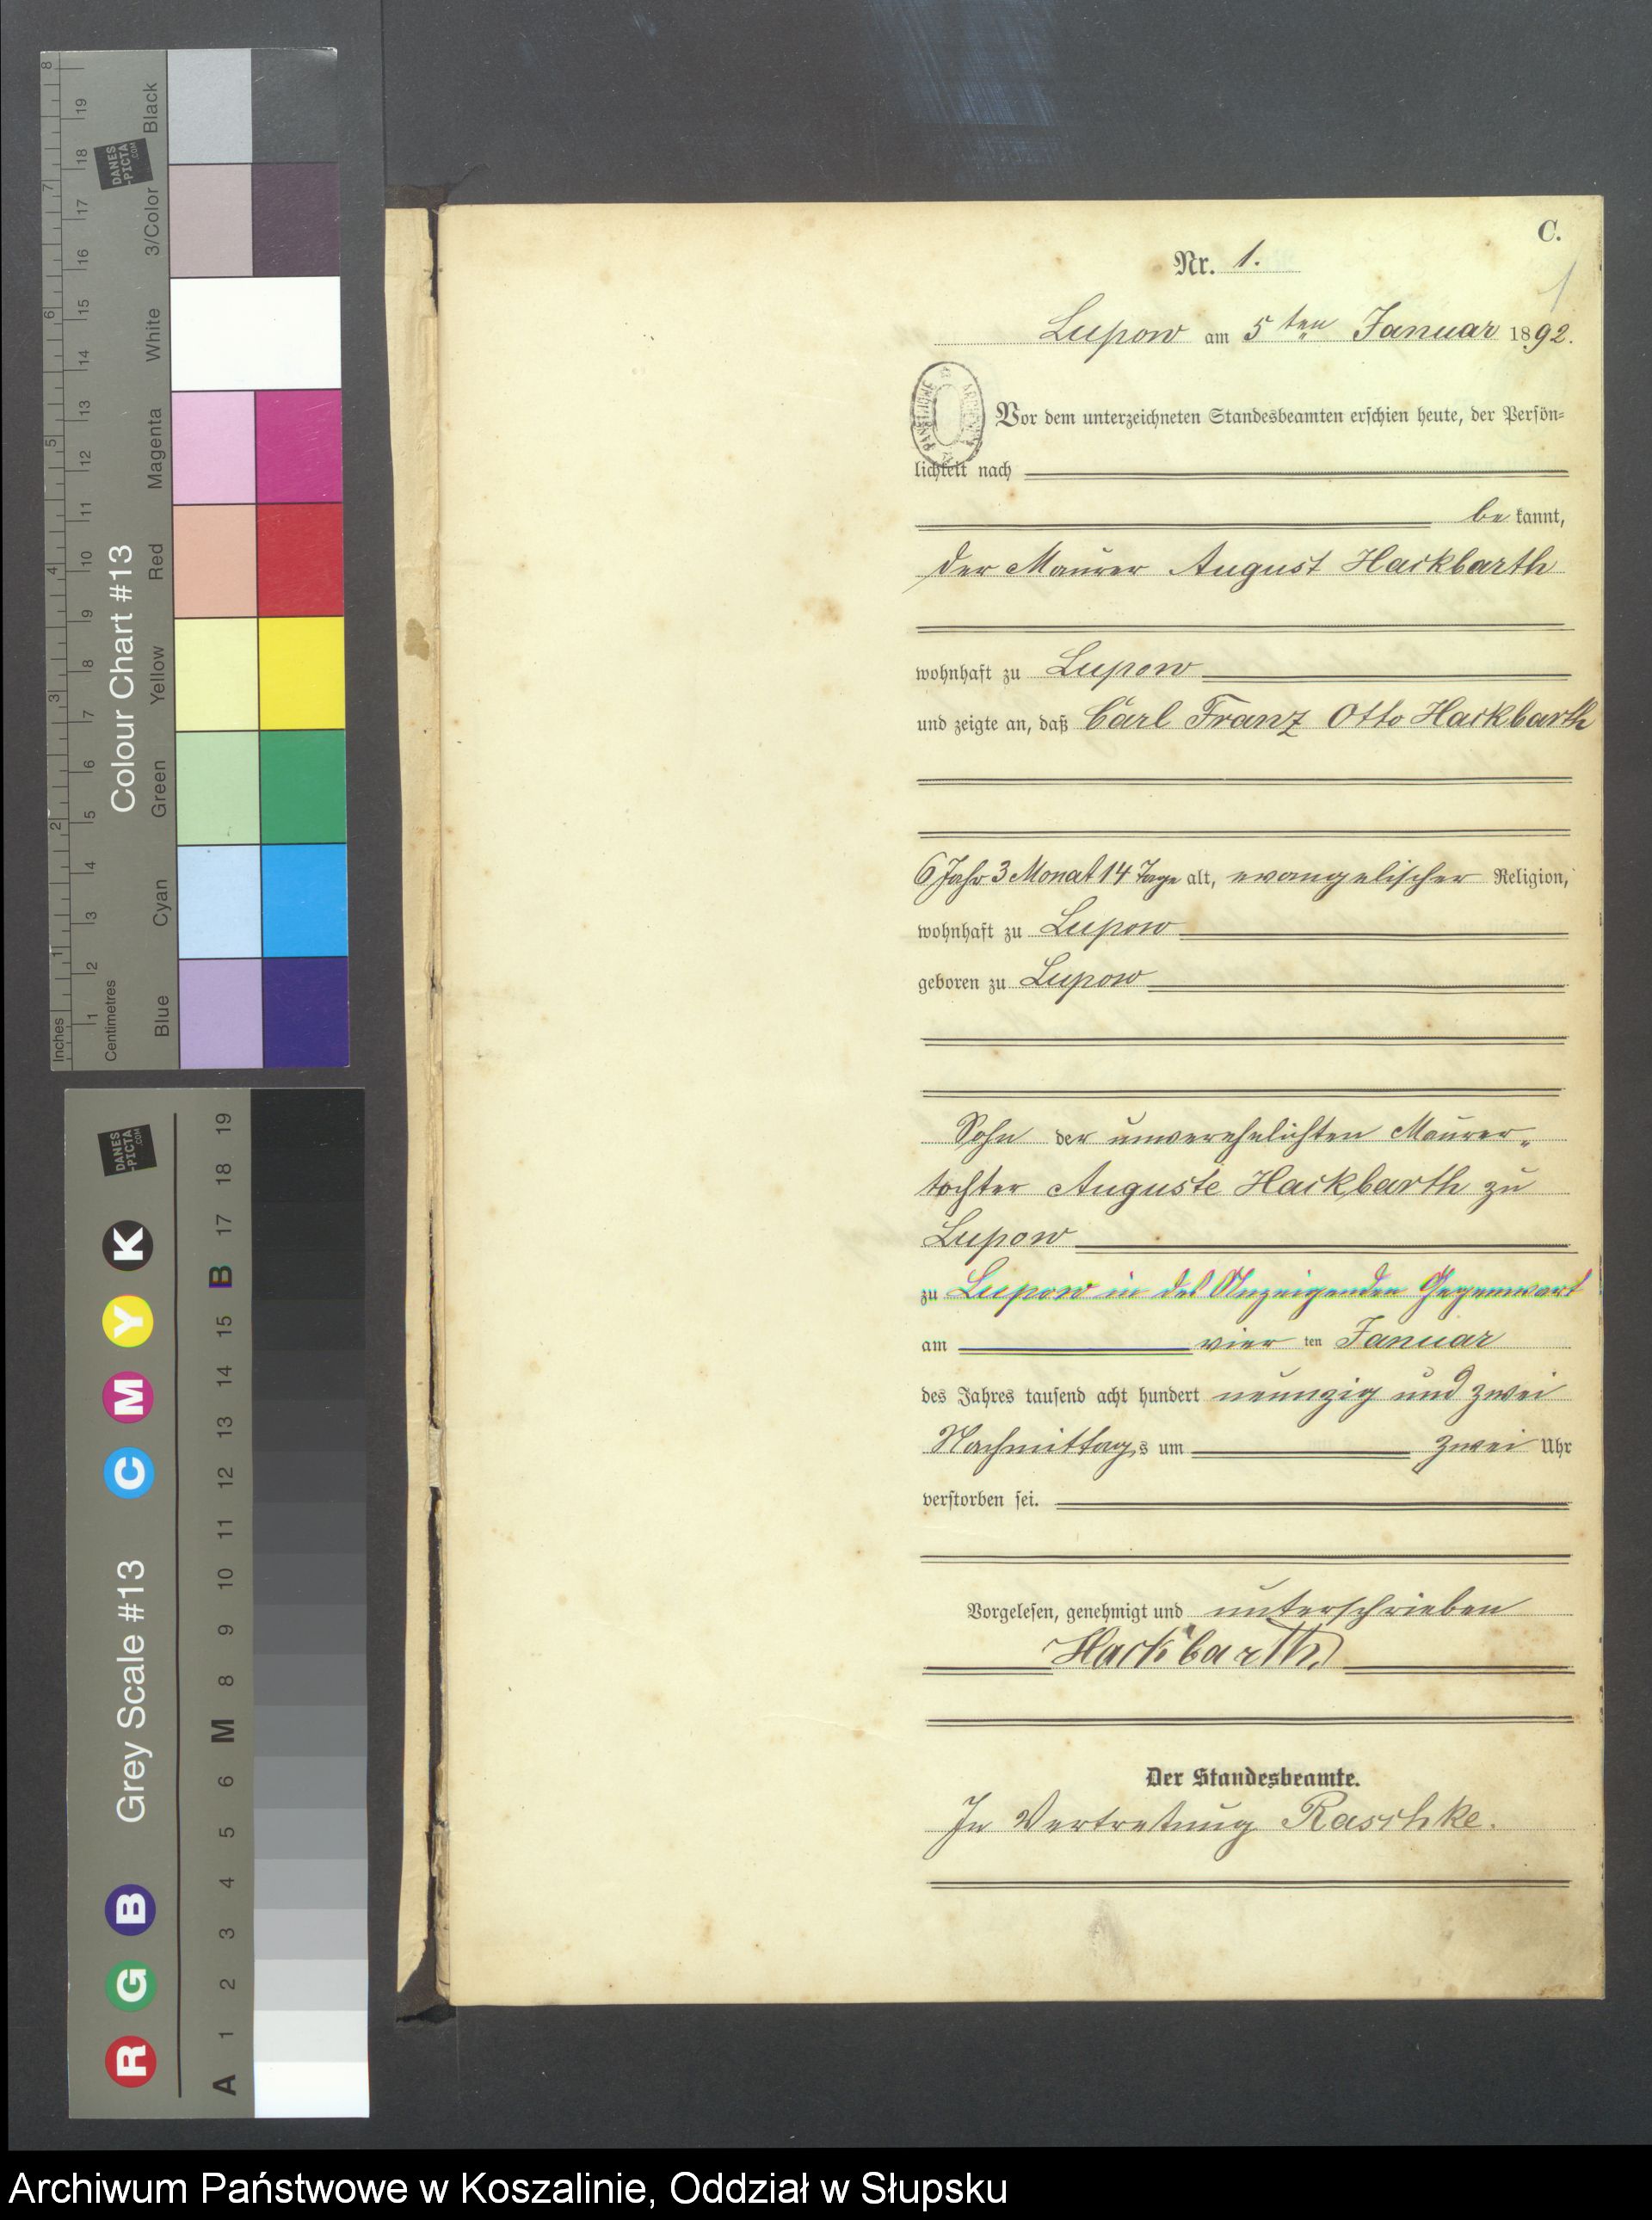 C.
Nr. 1.
1
Lupow am 5ten Januar 1892.
Vor dem unterzeichneten Standesbeamten erschien heute, der Persön=
lichkeit nach
be kannt,
der Maurer August Hackbarth
wohnhaft zu Lupow
und zeigte an, daß Carl Franz Otto Hackbarth
6 Jahr 3 Monat 14 Tage alt, evangelischer Religion,
wohnhaft zu Lupow
geboren zu Lupow
Sohn der unverehelichten Maurer-
tochter Auguste Hackbarth zu
Lupow
zu Lupow in des Anzeigenden Gegenwart
am vier ten Januar
des Jahres tausend acht hundert neunzig und zwei
Nachmittags um zwei Uhr
verstorben sei.
Vorgelesen, genehmigt und unterschrieben
Hackbarth
Der Standesbeamte.
In Vertretung Raschke.
Colour Chart #13
Black
3/Color
White
Magenta
Red
Yellow
Green
Cyan
Blue
Inches
Centimetres
DANES
-PICTA
.COM
8 7 6 5 4 3 2 1
19 18 17 16 15 14 13 12 11 10 9 8 7 6 5 4 3 2 1
Grey Scale #13
DANES
-PICTA
.COM
R G B C M Y K
A 1 2 3 4 5 6 M 8 9 10 11 12 13 14 15 B 17 18 19
Archiwum Państwowe w Koszalinie, Oddział w Słupsku